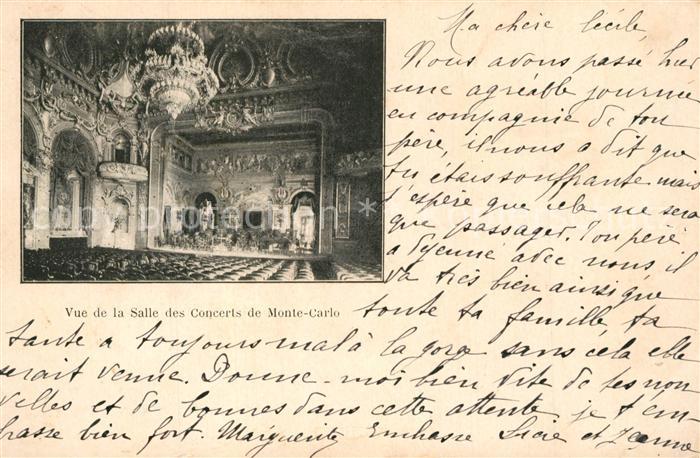 Ma chère Cécile,
Nous avons passé hier
une agréable journée
en compagnie de ton
père, il nous a dit que
tu étais souffrante mais
j'espère que cela ne sera
que passager. Ton père
a déjeuné avec nous, il
va très bien ainsi que
Vue de la Salle des Concerts de Monte-Carlo
toute ta famille, ta
tante a toujours mal à la gorge sans cela elle
serait venue. Donne-moi bien vite de tes nou
velles et de bonnes dans cette attente je t'em
brasse bien fort. Marguerite Embrasse et Jeanne